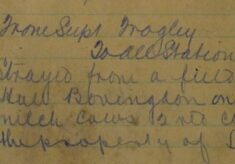 From Supt Frogley
To all Station
Strayed from a field
Hall Bovingdon on
milch Cows 2 red
the property of